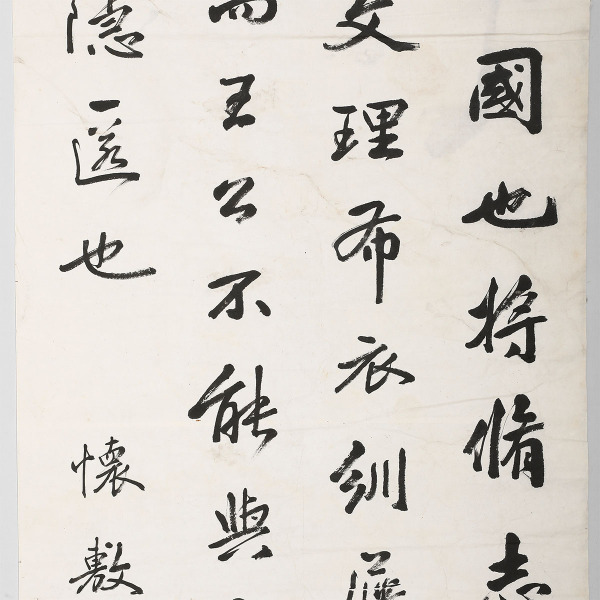 國也將脩志
文理布衣紃
而王公不能與
隱匿也 懷敷